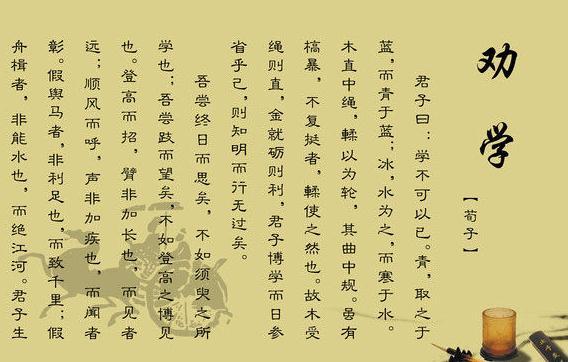 劝学
【荀子】
君子曰：学不可以已。青，取之于
蓝，而青于蓝；冰，水为之，而寒于水。
木直中绳，輮以为轮，其曲中规。虽有
槁暴，不复挺者，輮使之然也。故木受
绳则直，金就砺则利，君子博学而日参
省乎己，则知明而行无过矣。
吾尝终日而思矣，不如须臾之所
学也；吾尝跂而望矣，不如登高之博见
也。登高而招，臂非加长也，而见者
远；顺风而呼，声非加疾也，而闻者
彰。假舆马者，非利足也，而致千里；假
舟楫者，非能水也，而绝江河。君子生